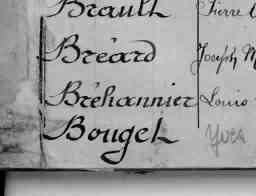 Brault Pierre
Bréard Joseph M
Bréhannier Louis
Bouget Yves